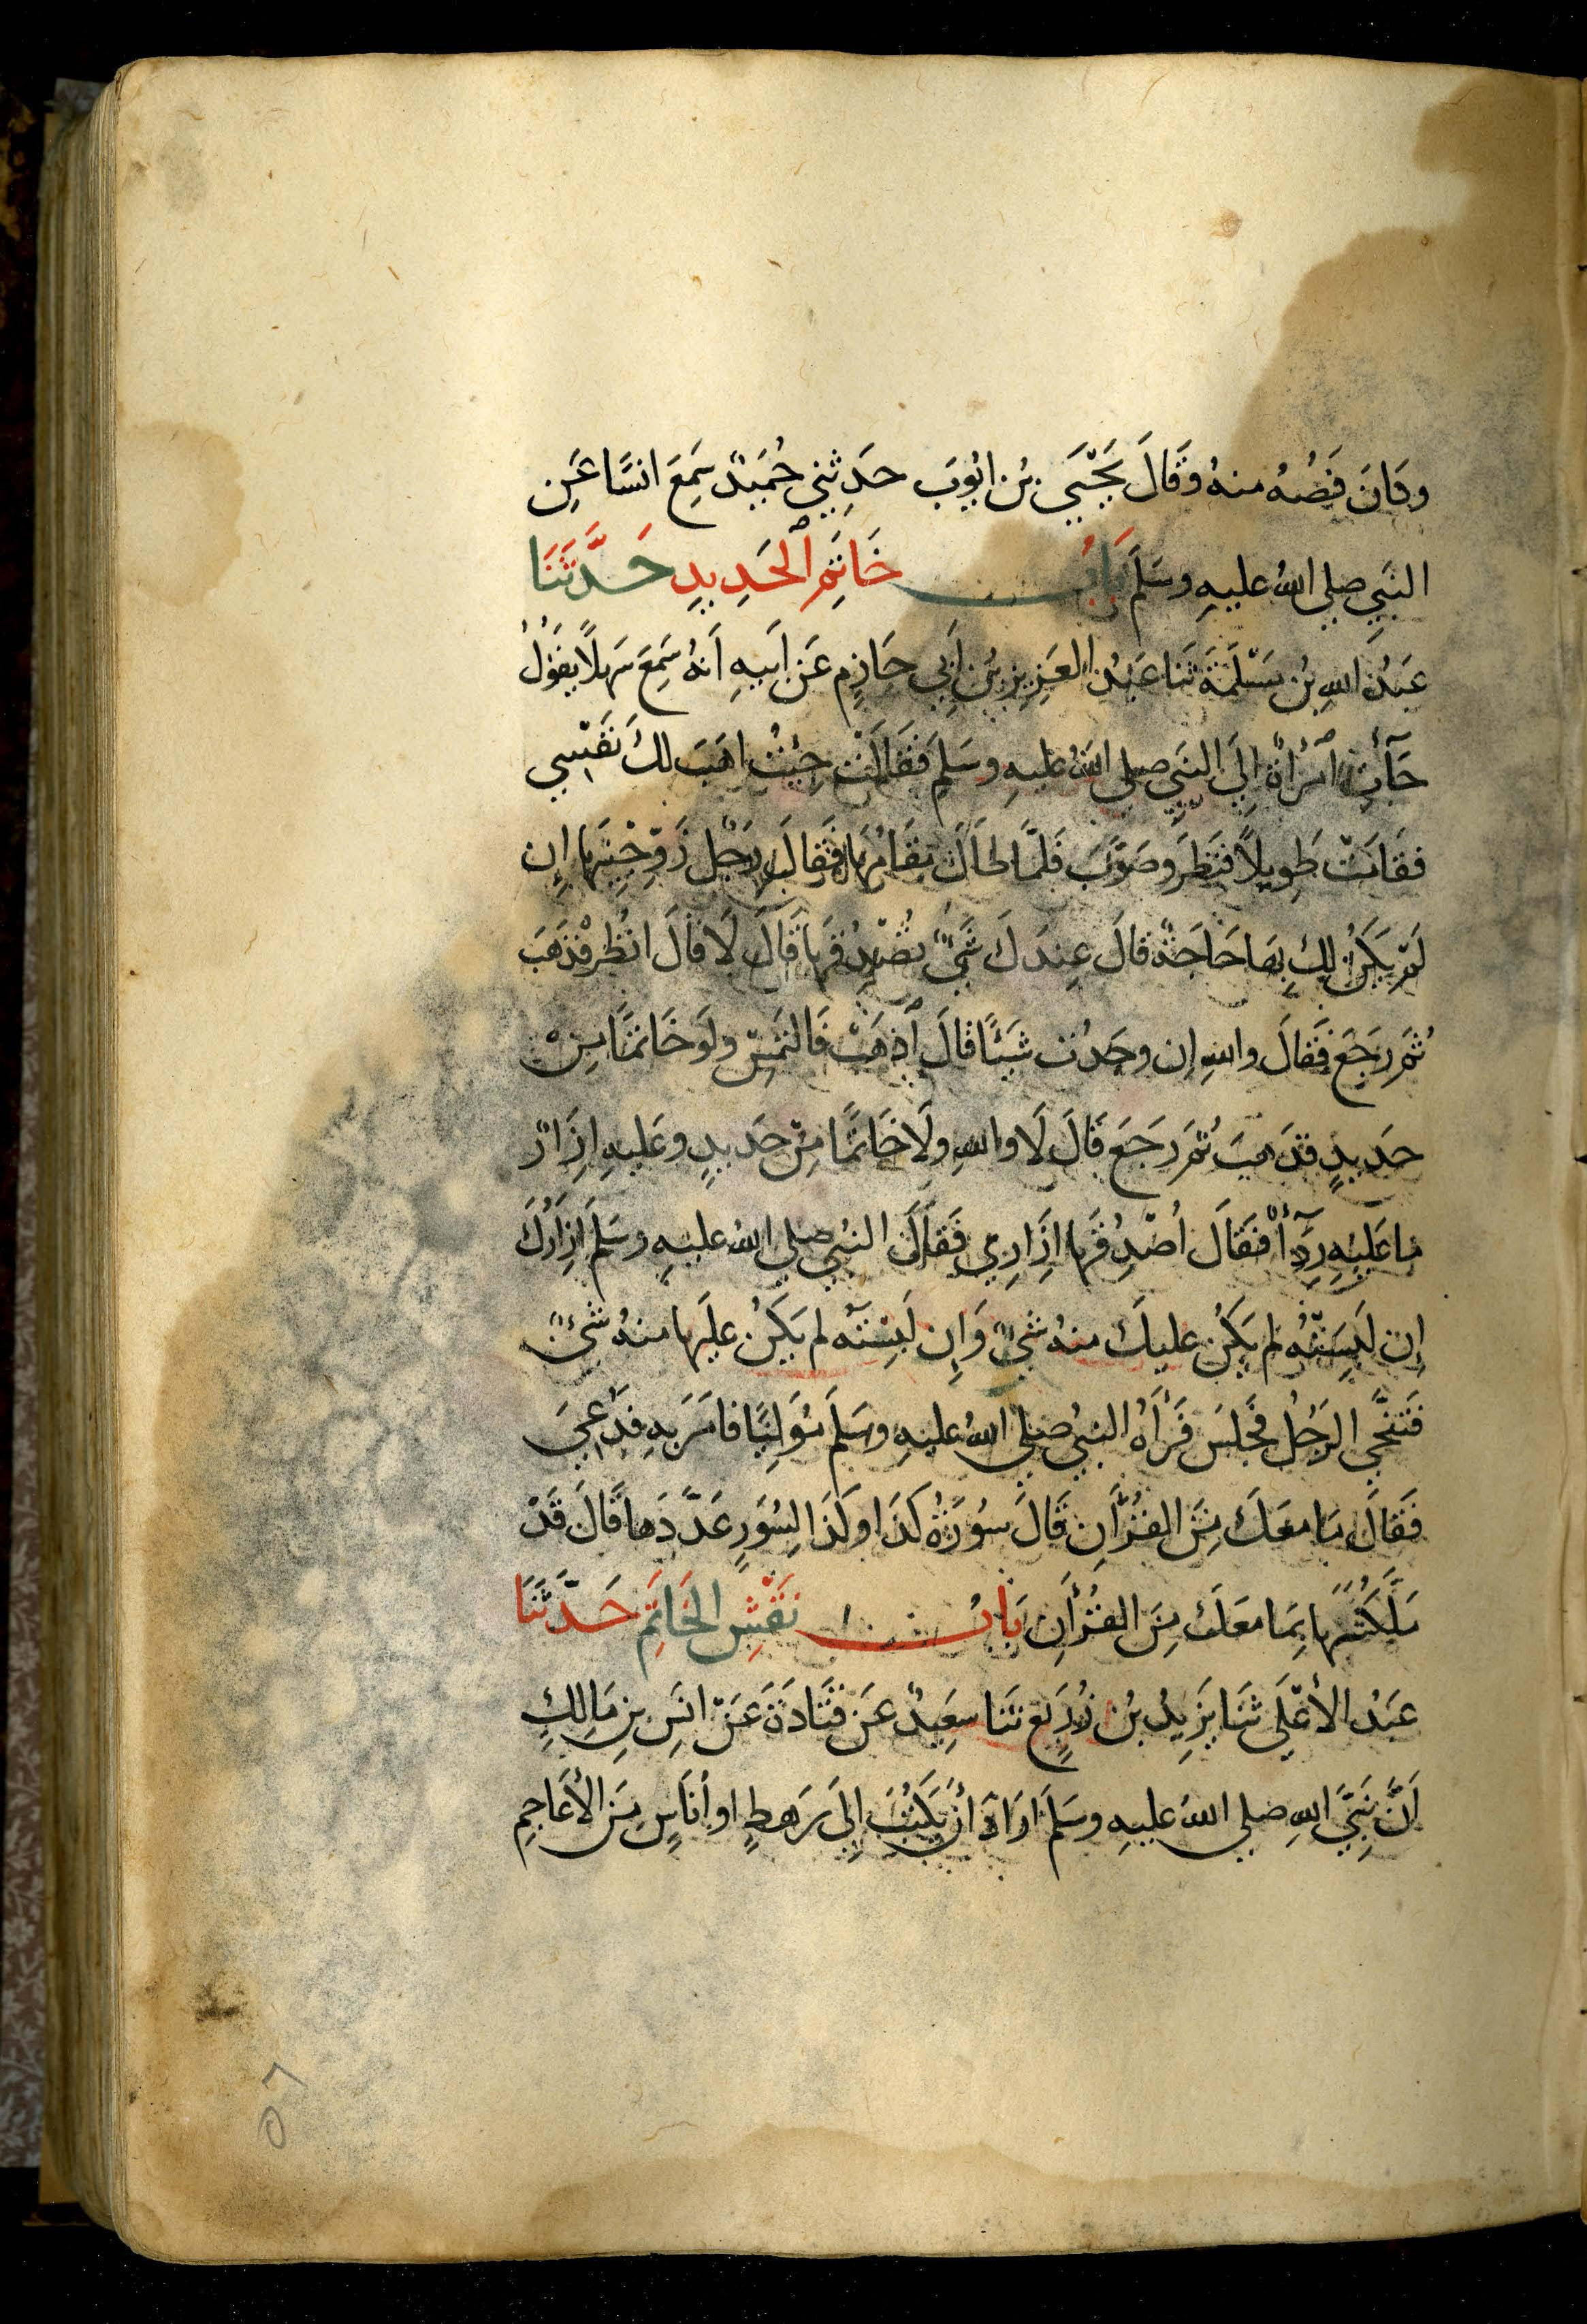 وكَانَ فَصُّهُ منهُ وقَالَ يَحْيَي بْن ايُّوبَ حدَثني حُمَيْدٌ سَمِعَ انسًا عَنِ
النَبِي صلي اللهُ عليهِ وسَلمَ بَابُ خَاتَمِ ٱلحَدِيدِ حَدَّثَنَا
عَبْدُ اللهِ بْن مَسْلَمَةَ ثنَا عَبْدُ العَزِيزِ بْن أَبي حَازِم عَن أَبيهِ أَنهُ سَمِعَ سَهلًا يقوُلُ
جَآءتِ ٱمرأَةٌ إِلَي النبَيِ صلي اللهُ عليهِ وسَلمَ فقَالَتْ جِئْتُ اهَبَ لكَ نَفْسِي
فقَامَتْ طَوِيلًا فنَظَرَ وصَوَّبَ فَلمَّا طَالَ مقَامُهَا فقَالَ رَجُل زَوِّجْنِيهَا إِن
لَمْ يَكُنْ لكَ بِهَا حَاجَةٌ قالَ عِندَكَ شَيْءٌ تُصْدِقُهَا قَالَ لَا قالَ انْظُرْ فذهَبَ
ثُمَ رجَعَ فَقَالَ واللهِ إن وجَدْت شَيْئًا قالَ ٱذْهَبْ فَالتَمِسْ ولَو خَاتمًا مِنْ
حَدِيدٍ فذَهَبَ ثُمَ رَجَعَ قَالَ لَا واللهِ ولَا خَاتمًا مِنْ حَدِيدٍ وعَليهِ إِزَارٌ
مَا عَليْهِ رِدَآءٌ فقَالَ أُصْدِقُهَا إِزَارِي فَقَالَ النبيُ صلي اللهُ عليهِ وسَلمَ إِزَارُكَ
إِن لَبِسَتْهُ لم يَكُن عليكَ منهُ شَيْءٌ وَإِن لَبِسْتَهُ لم يَكُنْ عليَها منهُ شَيْءٌ
فَتنَحَّي الرجُلُ فجَلسَ فَرَأَهُ النبيُ صلي اللهُ عليهِ وسَلمَ مُوَلِّيًا فامَرَ بهِ فدُعِيَ
فَقَالَ مَا معَكَ مِنَ القُرْأَنِ قَالَ سُورَةُ كَذَا وكَذَا لِسُوَرٍ عَدَّدَها قَالَ قَدْ
مَلَّكْتُكَهَا بِمَا معَكَ مِنَ القُرْأَنِ بَابُ نَقْشِ الخَاتَمِ حَدَّثَنَا
عَبْدُ الأَعْلَي ثنَا يَزِيدُ بْن زُرَيْعٍ ثنَا سعِيْدٌ عَن قتَادَةَ عَنْ انَسِ بْنِ مَالِكٍ
أَنَّ نَبِيَّ اللهِ صلي اللهُ عليهِ وسَلمَ ارَادَ أَنْ يَكْتُبَ إِلَي رَهطٍ او أُنَاسٍ مِنَ الأَعَاجِمِ